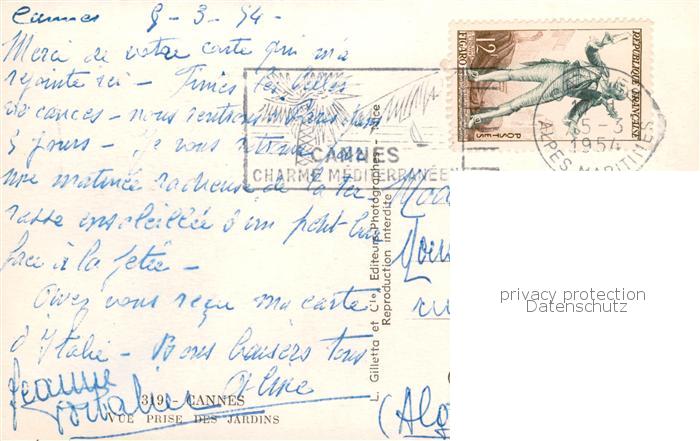 Cannes 8-3-54-
Merci de votre carte qui m'a
rejointe ici - Finies les belles
vacances - nous rentrons à Paris dans
5 jours - Je vous
une matinée radieuse de la ter
rasse ensoleillée d'un petit bar
face à la
Avez vous reçu ma carte
d'Italie - Bons baisers tous
Aline
Jeanne
319 - CANNES
VUE PRISE DES JARDINS
L. Gilletta et Cie, Editeurs-Photographes - Nice
Reproduction interdite
CANNES
CHARME MÉDITERRANÉEN
12F
FIGARO
REPUBLIQUE FRANÇAISE
POSTES
5-3
1954
ALPES-MARITIMES
(Alg
privacy protection
Datenschutz